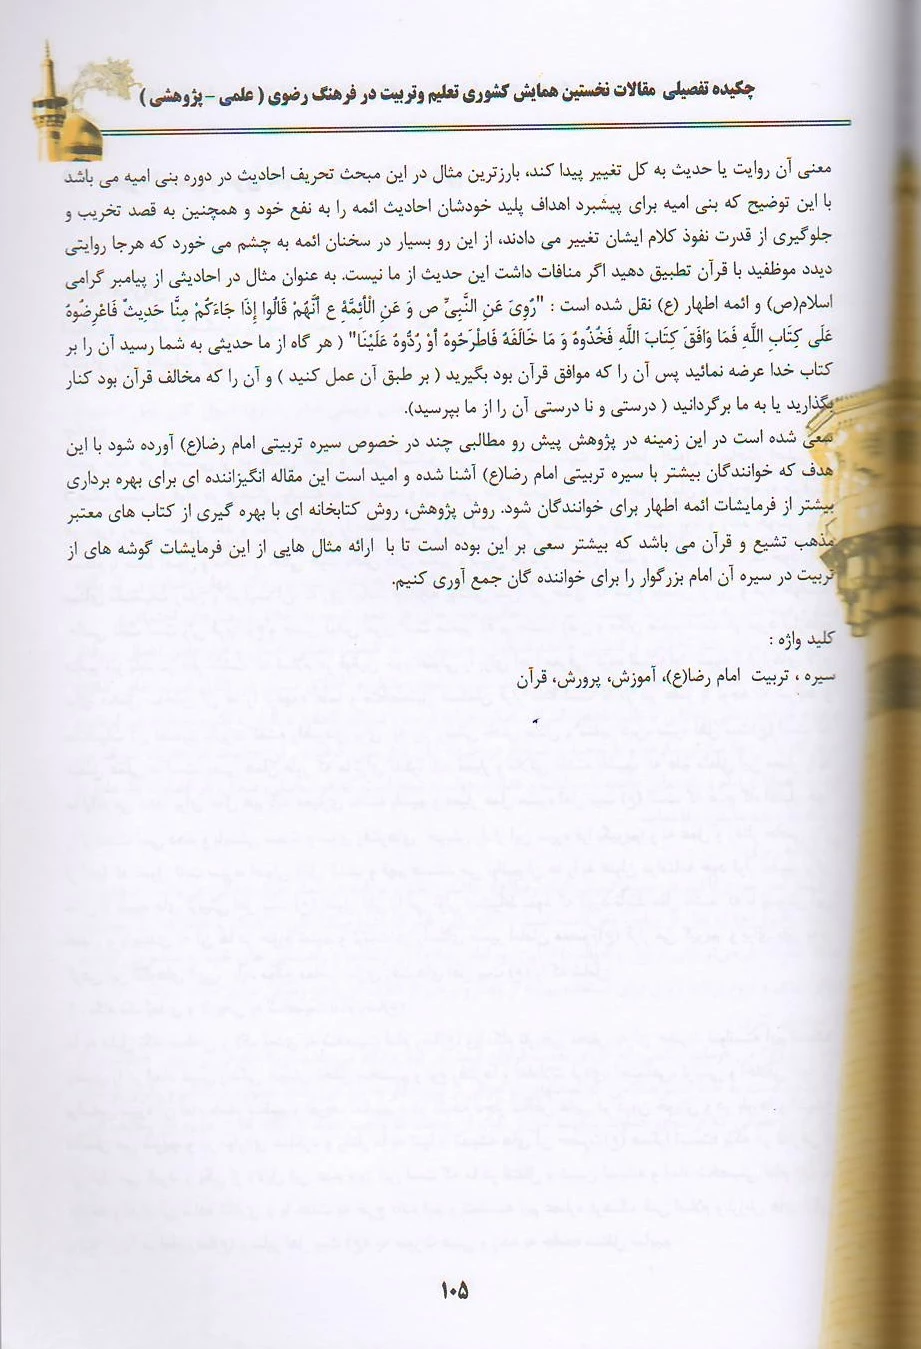 چکیده تفصیلی مقالات نخستین همایش کشوری تعلیم وتربیت در فرهنگ رضوی ( علمی - پژوهشی )
معنی آن روایت یا حدیث به کل تغییر پیدا کند، بارزترین مثال در این مبحث تحریف احادیث در دوره بنی امیه می باشد
با این توضیح که بنی امیه برای پیشبرد اهداف پلید خودشان احادیث ائمه را به نفع خود و همچنین به قصد تخریب و
جلوگیری از قدرت نفوذ کلام ایشان تغییر می دادند، از این رو بسیار در سخنان ائمه به چشم می خورد که هرجا روایتی
دیدد موظفید با قرآن تطبیق دهید اگر منافات داشت این حدیث از ما نیست. به عنوان مثال در احادیثی از پیامبر گرامی
اسلام(ص) و ائمه اطهار (ع) نقل شده است : "رُوِیَ عَنِ النَّبِیِّ ص وَ عَنِ الْأَئِمَّهِ ع أَنَّهُمْ قَالُوا إِذَا جَاءَکُمْ مِنَّا حَدِیثٌ فَاعْرِضُوهُ
عَلَی کِتَابِ اللَّهِ فَمَا وَافَقَ کِتَابَ اللَّهِ فَخُذُوهُ وَ مَا خَالَفَهُ فَاطْرَحُوهُ أَوْ رُدُّوهُ عَلَیْنَا" ( هر گاه از ما حدیثی به شما رسید آن را بر
کتاب خدا عرضه نمائید پس آن را که موافق قرآن بود بگیرید ( بر طبق آن عمل کنید ) و آن را که مخالف قرآن بود کنار
بگذارید یا به ما برگردانید ( درستی و نا درستی آن را از ما بپرسید).
سعی شده است در این زمینه در پژوهش پیش رو مطالبی چند در خصوص سیره تربیتی امام رضا(ع) آورده شود با این
هدف که خوانندگان بیشتر با سیره تربیتی امام رضا(ع) آشنا شده و امید است این مقاله انگیزاننده ای برای بهره برداری
بیشتر از فرمایشات ائمه اطهار برای خوانندگان شود. روش پژوهش، روش کتابخانه ای با بهره گیری از کتاب های معتبر
مذهب تشیع و قرآن می باشد که بیشتر سعی بر این بوده است تا با ارائه مثال هایی از این فرمایشات گوشه های از
تربیت در سیره آن امام بزرگوار را برای خواننده گان جمع آوری کنیم.
کلید واژه :
سیره ، تربیت امام رضا(ع)، آموزش، پرورش، قرآن
۱۰۵